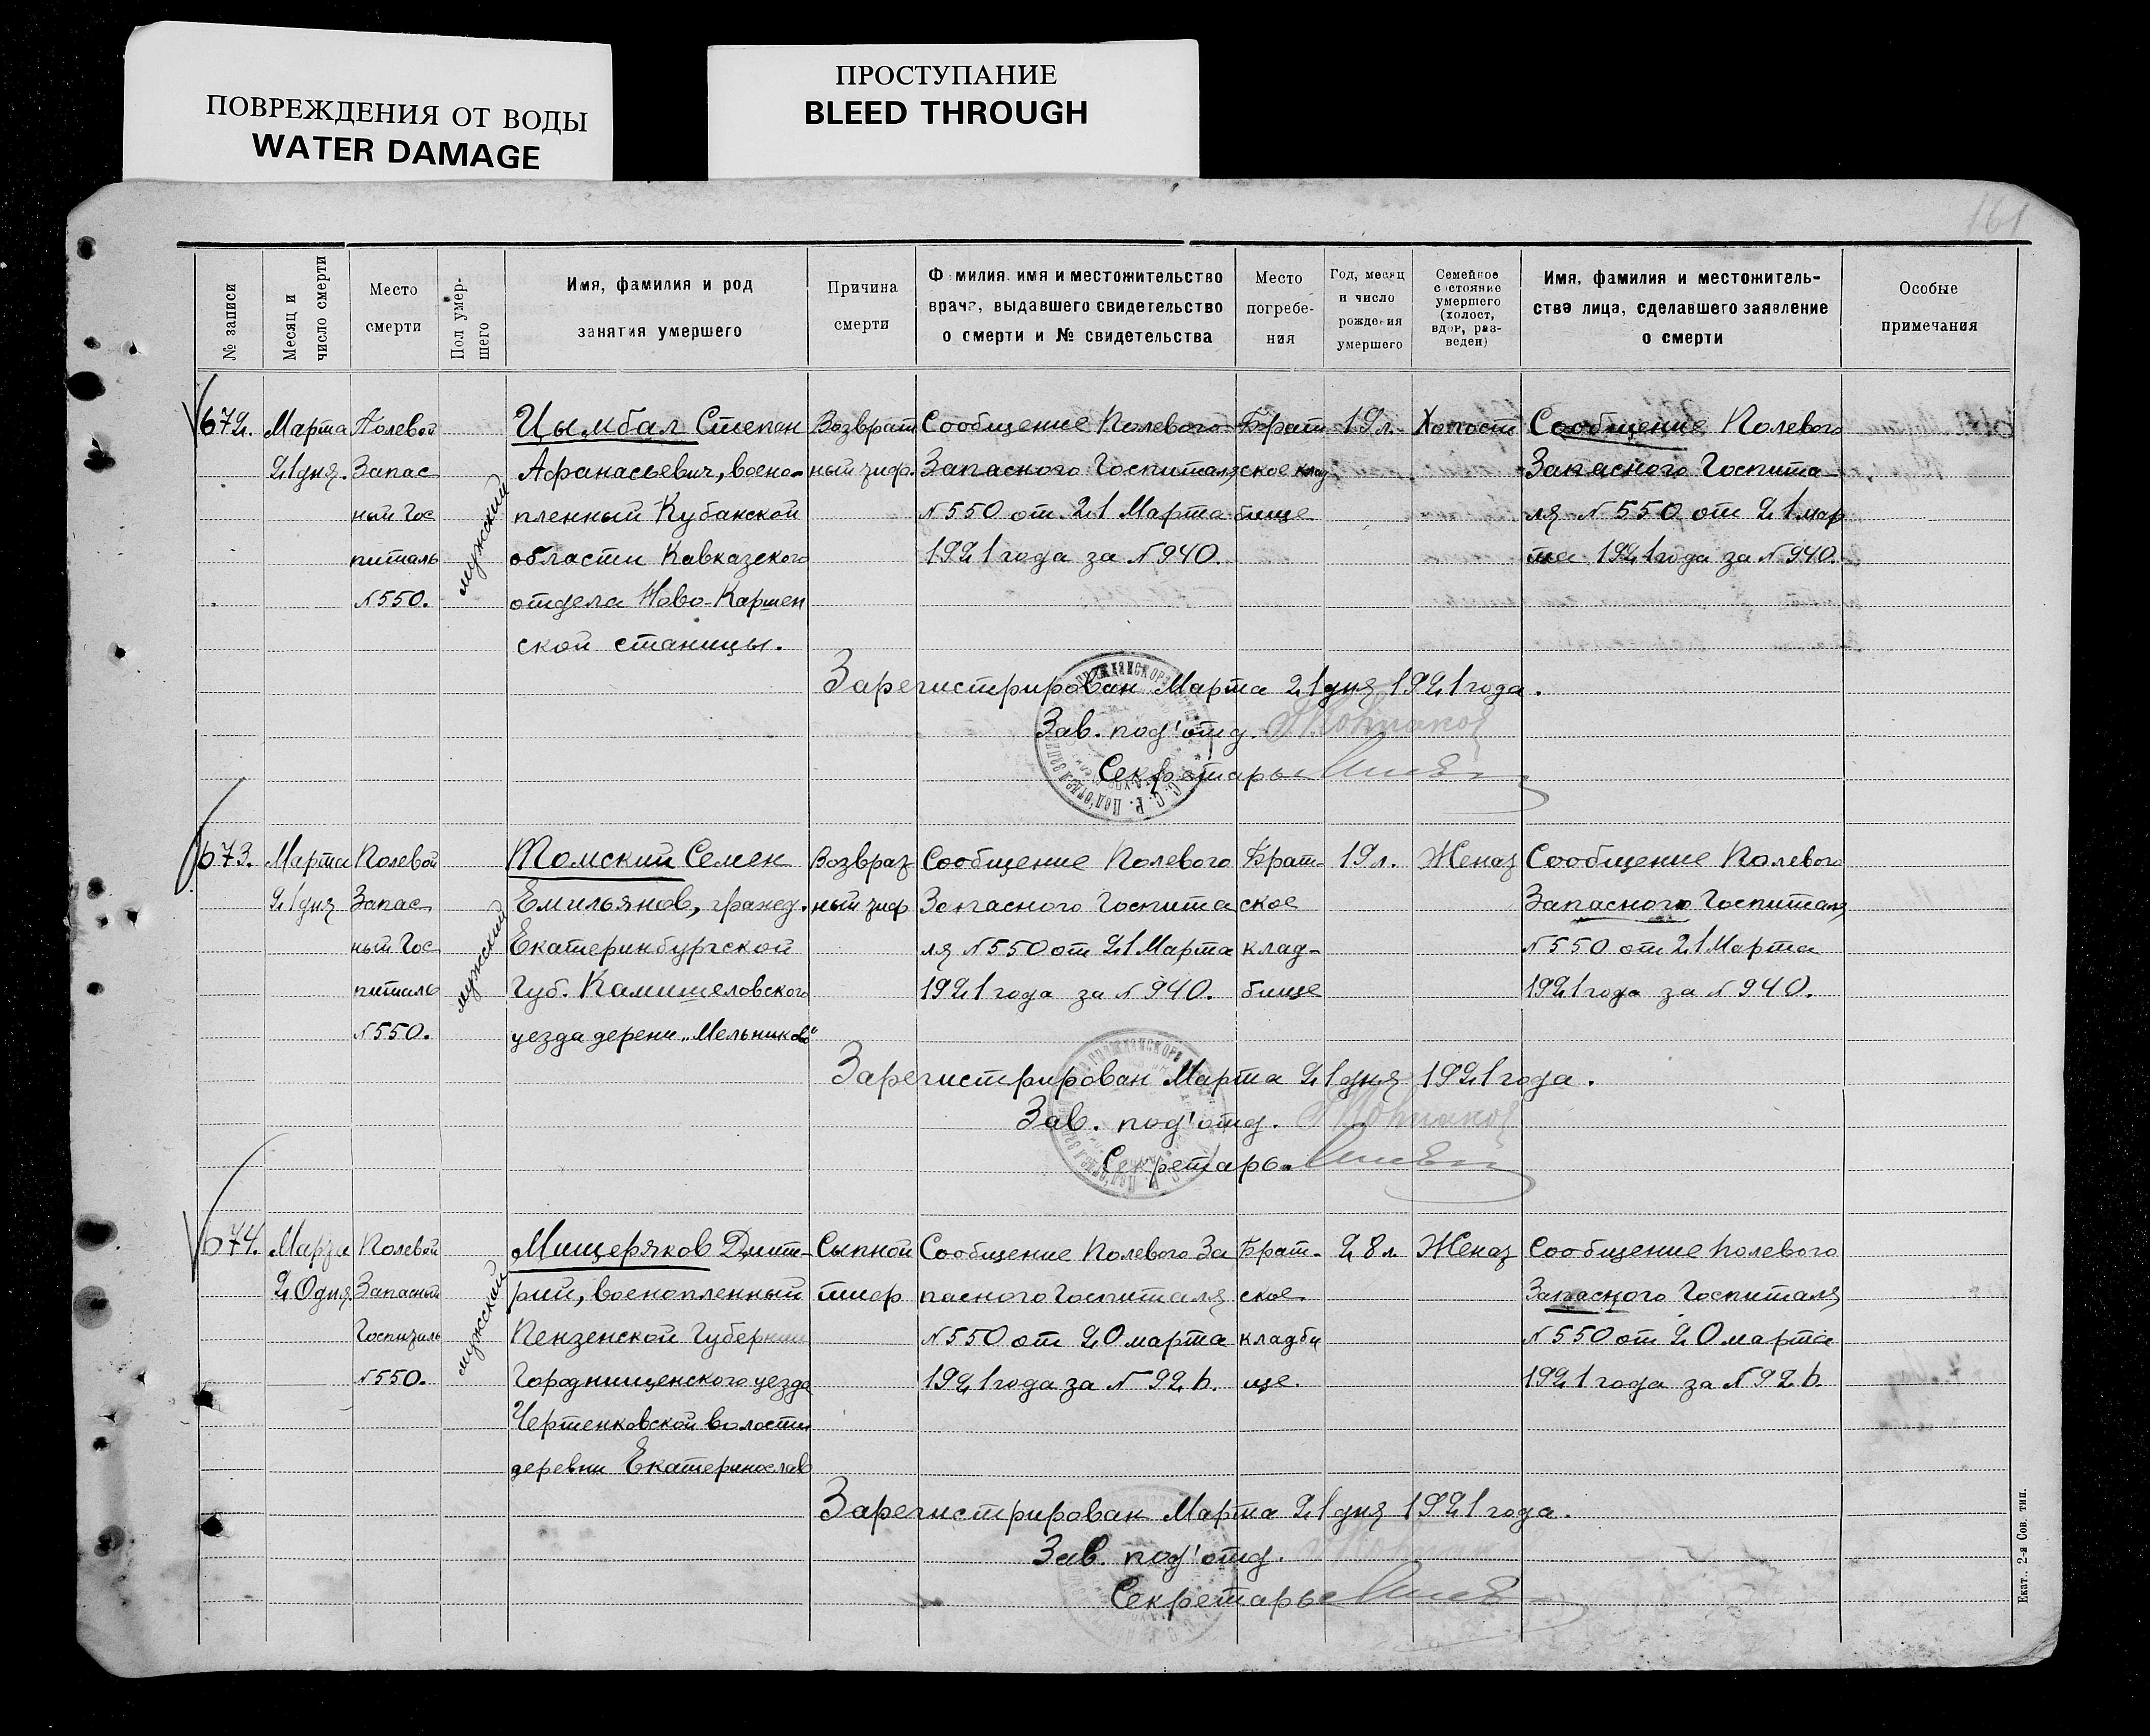 ПОВРЕЖДЕНИЯ ОТ ВОДЫ
WATER DAMAGE
ПРОСТУПАНИЕ
BLEED THROUGH
161
№ записи
Месяц и
число смерти
Место
смерти
Пол умер-
шего
Имя, фамилия и род
занятия умершего
Причина
смерти
Фамилия имя и местожительство
врача, выдавшего свидетельство
о смерти и № свидетельства
Место
погребе-
ния
Год, месяц
и число
рождения
умершего
Семейное
состояние
умершего
(холост,
вдов, раз-
веден)
Имя, фамилия и местожитель-
ства лица, сделавшего заявление
о смерти
Особые
примечания
672.
Марта
21 дня.
Полевой
Запас
ный Гос
питаль
№550.
мужский
Цымбал Степан
Афанасьевич, воено-
пленный Кубанской
области Кавказского
отдела Ново-
ской станицы.
Возврат
ный тиф.
Сообщение Полевого
Запасного Госпиталя
№550 от 21 Марта
1921 года за №940.
Брат
ское клад
бище
19 л.
Холост
Сообщение Полевого
Запасного Госпита-
ля №550 от 21 мар
та 1921 года за №940.
Зарегистрирован Марта 21 дня 1921 года.
Зав. под'отд.
Секретарь
673.
Марта
21 дня
Полевой
Запас
ный Гос
питаль
№550.
мужский
Томский Семен
Емильянов, гражд.
Екатеринбургской
Губ. Камишеловского
уезда дерени „Мельников"
Возвраз
ный тиф
Сообщение Полевого
Запасного Госпита
ля №550 от 21 Марта
1921 года за №940.
Брат-
ское
клад-
бище
19 л.
Женат
Сообщение Полевого
Запасного Госпиталя
№550 от 21 Марта
1921 года за №940.
Зарегистрирован Марта 21 дня 1921 года.
Зав. под'отд.
Секретарь
674.
Марта
20 дня.
Полевой
Запасный
Госпиталь
№550.
мужский
Мищеряков Дмит-
рий, военопленный
Пензенской Губернии
Городнищенского уезда
Чертенковской волости
деревни Екатеринослав
Сыпной
тиф
Сообщение Полевого За
пасного Госпиталя
№550 от 20 марта
1921 года за №926.
Брат-
ское
кладби
ще.
28 л
Женат
Сообщение полевого
Запасного Госпиталя
№550 от 20 марта
1921 года за №926.
Зарегистрирован Марта 21 дня 1921 года.
Зав. под'отд.
Секретарь
Екат., 2-я Сов. тип.